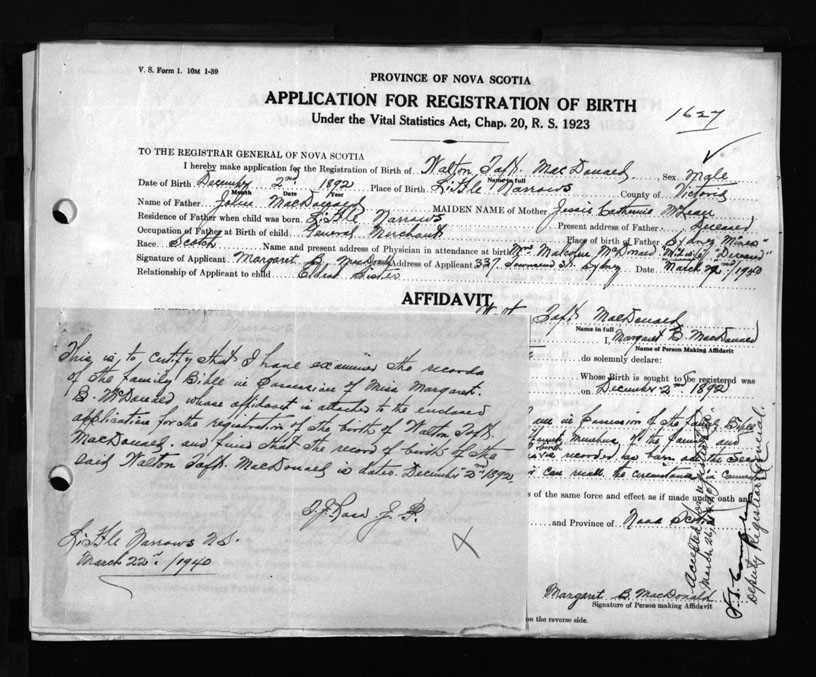 V. S. Form 1. 10M 1-39
PROVINCE OF NOVA SCOTIA
APPLICATION FOR REGISTRATION OF BIRTH
Under the Vital Statistics Act, Chap. 20, R. S. 1923
1627
TO THE REGISTRAR GENERAL OF NOVA SCOTIA
I hereby make application for the Registration of Birth of Walton Taft MacDonald Sex Male
Name in full
Date of Birth December 2nd 1892 Place of Birth Little Narrows County of Victoria
Month Date Year
Name of Father John MacDonald MAIDEN NAME of Mother Jessie Catherine McLean
Residence of Father when child was born Little Narrows Present address of Father Deceased
Occupation of Father at Birth of child General Merchant Place of birth of Father Sydney Mines
Race Scotch Name and present address of Physician in attendance at birth Mrs Malcolm McDonald "Midwife" "Deceased"
Signature of Applicant Margaret B. MacDonald Address of Applicant 337 Townsend St. Sydney Date March 1940
Relationship of Applicant to child Eldest Sister
AFFIDAVIT
Taft MacDonald
Name in full
I, Margaret B. MacDonald
Name of Person Making Affidavit
do solemnly declare:
Whose Birth is sought to be registered was
on December 2nd 1892
am in Possession of the family Bible
of the family and
recorded
can recall the circumstances
of the same force and effect as if made under oath and
and Province of Nova Scotia
Margaret B. MacDonald
Signature of Person making Affidavit
on the reverse side.
This is to certify that I have examined the records
of the family Bible in Possession of Miss Margaret
B. McDonald whose affidavit is attached to the enclosed
application for the registration of the birth of Walton Taft
MacDonald. and find that the record of birth of the
said Walton Taft MacDonald is dated December 2nd 1892
J. P.
Little Narrows N.S.
March 22nd, 1940
Accepted for registration
March 26,
Deputy Registrar General.